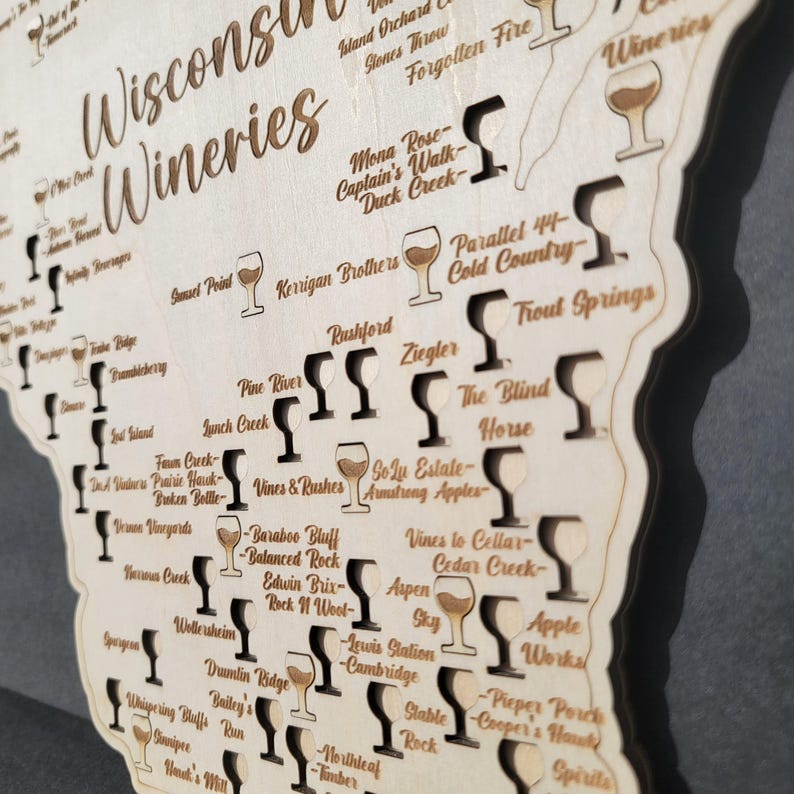 Wisconsin
Wineries
Island Orchard
Stones Throw
Forgotten Fire
Wineries
Mona Rose-
Captain's Walk-
Duck Creek-
O'Neil Creek
-Autumn Harvest
Infinity Beverages
Sunset Point
Kerrigan Brothers
Parallel 44-
Cold Country-
Trout Springs
Rushford
Ziegler
Pine River
The Blind
Horse
Danzinger
Tenba Ridge
Brambleberry
Elmaro
Lost Island
Lunch Creek
Fawn Creek-
Prairie Hawk-
Broken Bottle-
DnA Vintners
Vines & Rushes
SoLu Estate-
Armstrong Apples-
Vernon Vineyards
-Baraboo Bluff
-Balanced Rock
Vines to Cellar-
Cedar Creek-
Narrows Creek
Edwin Brix-
Rock N Wool-
Aspen
Sky
Wollersheim
Apple
Works
Spurgeon
-Lewis Station
-Cambridge
Drumlin Ridge
Whispering Bluffs
Bailey's
Run
Stable
Rock
-Pieper Porch
-Cooper's Hawk
Sinnipee
Hawk's Mill
-Northleaf
-Timber
Spirits